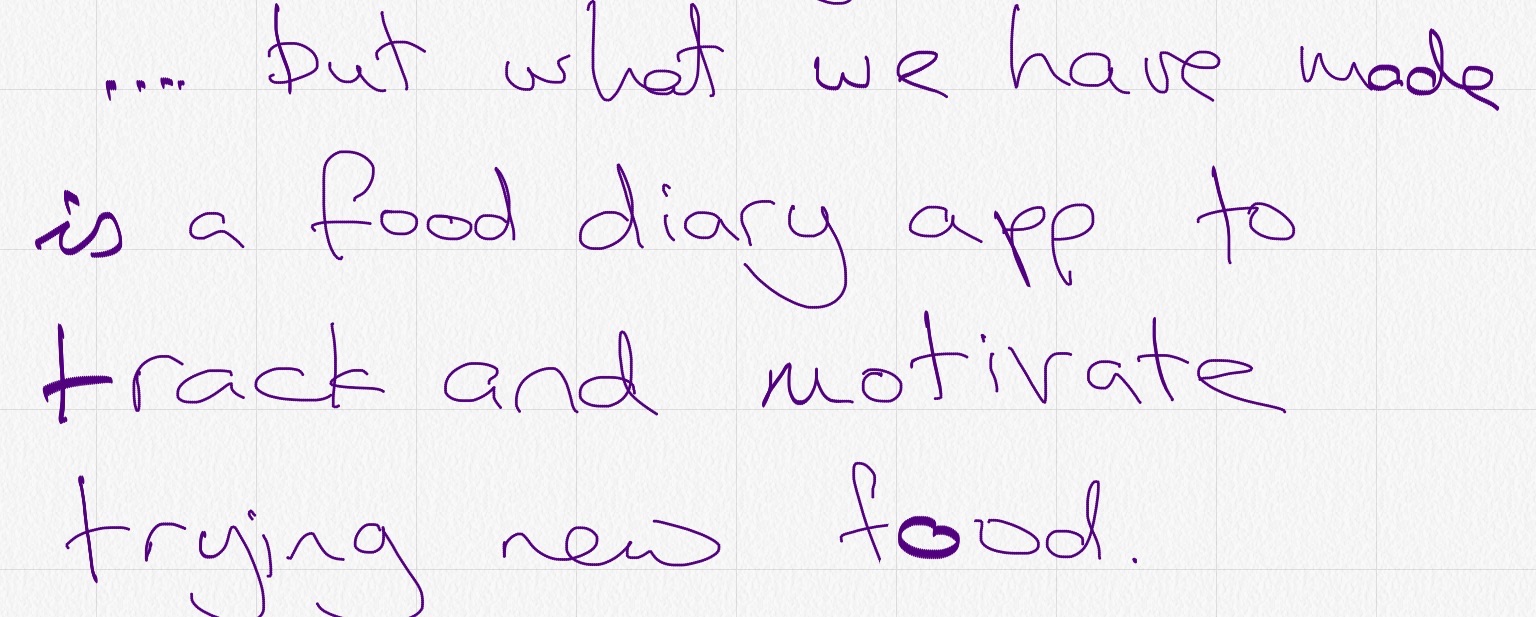 .... but what we have made
is a food diary app to
track and motivate
trying new food.